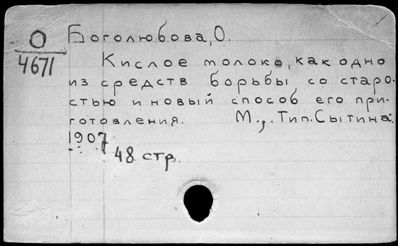 О
4671
Боголюбова, О.
Кислое молоко, как одно
из средств борьбы со старо-
стью и новый способ его при-
готовления. М., Тип. Сытина.
1907
48 стр.